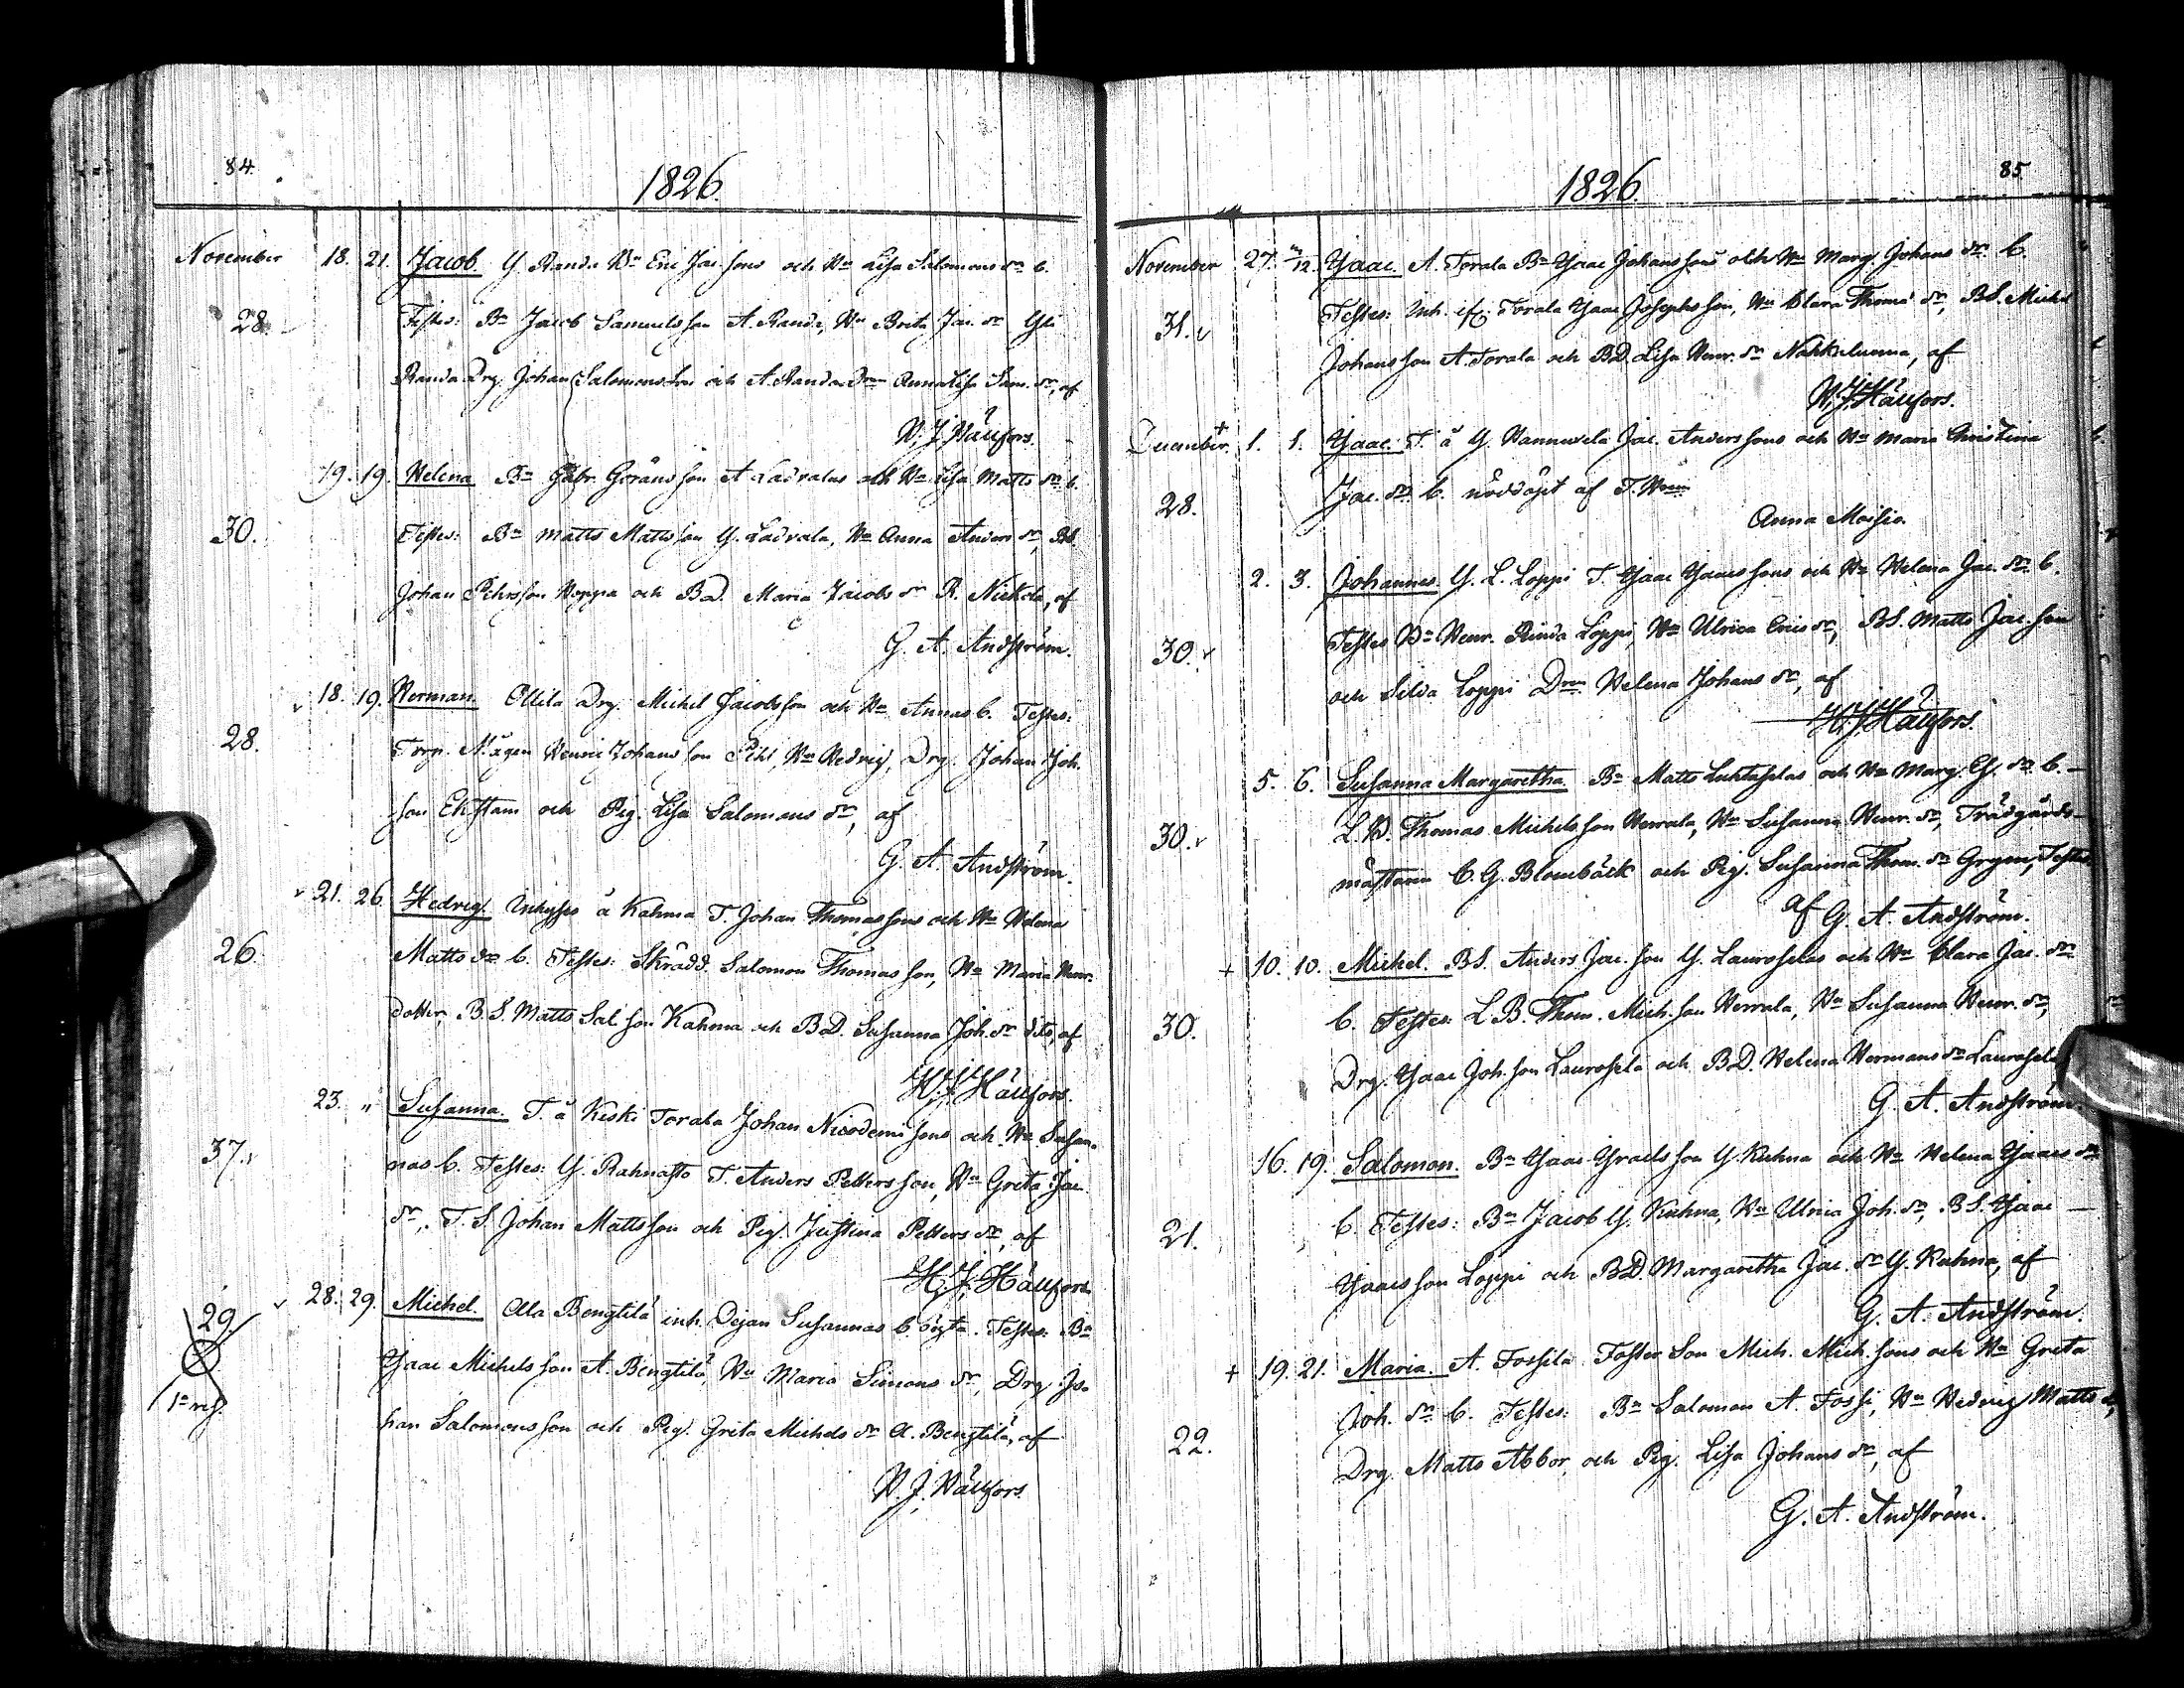 84.
1826.
November 18. 21. Jacob. Y. Randa Bn Eric Jac. sons och Hu Lisa Salomons dr b.
28. Testes: Bn Jacob Samuels son A. Randa, Hu Brita Jac. dr Yli
Randa Drg. Johan Salomons son och A. Randa Drn Anna Lisa Sam. dr, af
H. J. Hällfors.
19. 19. Helena Bn Gabr. Görans son A Ladvalas och Hu Lisa Matts dr b.
30. Testes: Bn Matts Matts son Y. Ladvala, Hu Anna Anders dr, BS.
Johan Pehrs son Hoppa och BD. Maria Jacobs dr R. Nickola, af
G. A. Andström.
18. 19. Herman. Ollila Drg. Michel Jacobs son och Hu Annas b. Testes:
28. Torp. Mågen Henric Johans son Pihl, Hu Hedvig, Drg. Johan Joh.
son Ekstam och Pig. Lisa Salomons dr, af
G. A. Andström.
21. 26. Hedvig. Inhyses å Kahma T. Johan Thomas sons och Hu Helena
26. Matts dr b. Testes: Skrädd. Salomon Thomas son, Hu Maria Henr.
dotter, B.S. Matts Sal. son Kahma och BD. Susanna Joh. dr dito, af
H. J. Hällfors.
23. " Susanna. T. å Keski Torala Johan Nicodemi sons och Hu Susan-
37. nas b. Testes: Y. Rahnasto T. Anders Petters son, Hu Greta Jac.
dr, T. S. Johan Matts son och Pig. Justina Petters dr, af
H. J. Hällfors
28. 29. Michel. Ala Bengtilä inh. Dejan Susannas b. oägta. Testes: Bn
29. Isaac Michels son A. Bengtilä, Hu Maria Simons dr, Drg. Jo-
1sta
han Salomons son och Pig. Greta Michels dr A. Bengtilä, af
H. J. Hällfors.
85
1826.
November 27. 3/12. Isaac. A. Torala Bn Isaac Johans sons och Hu Marg. Johans dr. b.
31. Testes: Inh. ifr. Torala Isaac Josephs son, Hu Clara Thoms dr, BS. Michel
Johans son A Torala och BD. Lisa Henr. dr Nahkaluoma, af
H. J. Hällfors.
December + 1. 1. Isaac. T. å Y. Hannuxela Jac. Anders sons och Hu Maria Christina
28. Jac. dr b. nöddöpt af T. Henr.
Anna Moisio.
2. 3. Johannes. Y. L. Loppi T. Isaac Isaacs sons och Hu Helena Jac. dr b.
30. Testes Bn Henr. Rinda Loppi, Hu Ulrica Erics dr, BS. Matts Jac. son
och Silda Loppi Drn Helena Johans dr, af
H. J. Hällfors.
5. 6. Susanna Margaretha. Bn Matts Luhtaselas och Hu Marg. Es. dr b.
30. L. B. Thomas Michels son Herrala, Hu Susanna Henr. dr, Trädgårds-
mästaren C. G. Blombäck och Pig. Susanna Thom. dr Grym, Testes
af G. A. Andström.
+ 10. 10. Michel. BS. Anders Jac. son Y. Lauroselas och Hu Clara Jac. dr
30. b. Testes: L B. Thom. Mich. son Herrala, Hu Susanna Henr. dr,
Drg. Isaac Joh. son Laurosela och BD. Helena Hermans dr Laurosela
G. A. Andström.
16. 19. Salomon. Bn Isaac Israels son Y. Kuhna och Hu Helena Isaacs dr
21. b. Testes: Bn Jacob Y. Kuhna, Hu Ulrica Joh. dr, BS. Isaac
Isaacs son Loppi och BD. Margaretha Jac. dr Y. Kuhna, af
G. A. Andström.
+ 19. 21. Maria. A. Fossila Foster Son Mich. Mich. sons och Hu Greta
22. Joh. dr b. Testes: Bn Salomon A. Fossi, Hu Hedvig Matts dr,
Drg. Matts Abbor, och Pig. Lisa Johans dr, af
G. A. Andström.